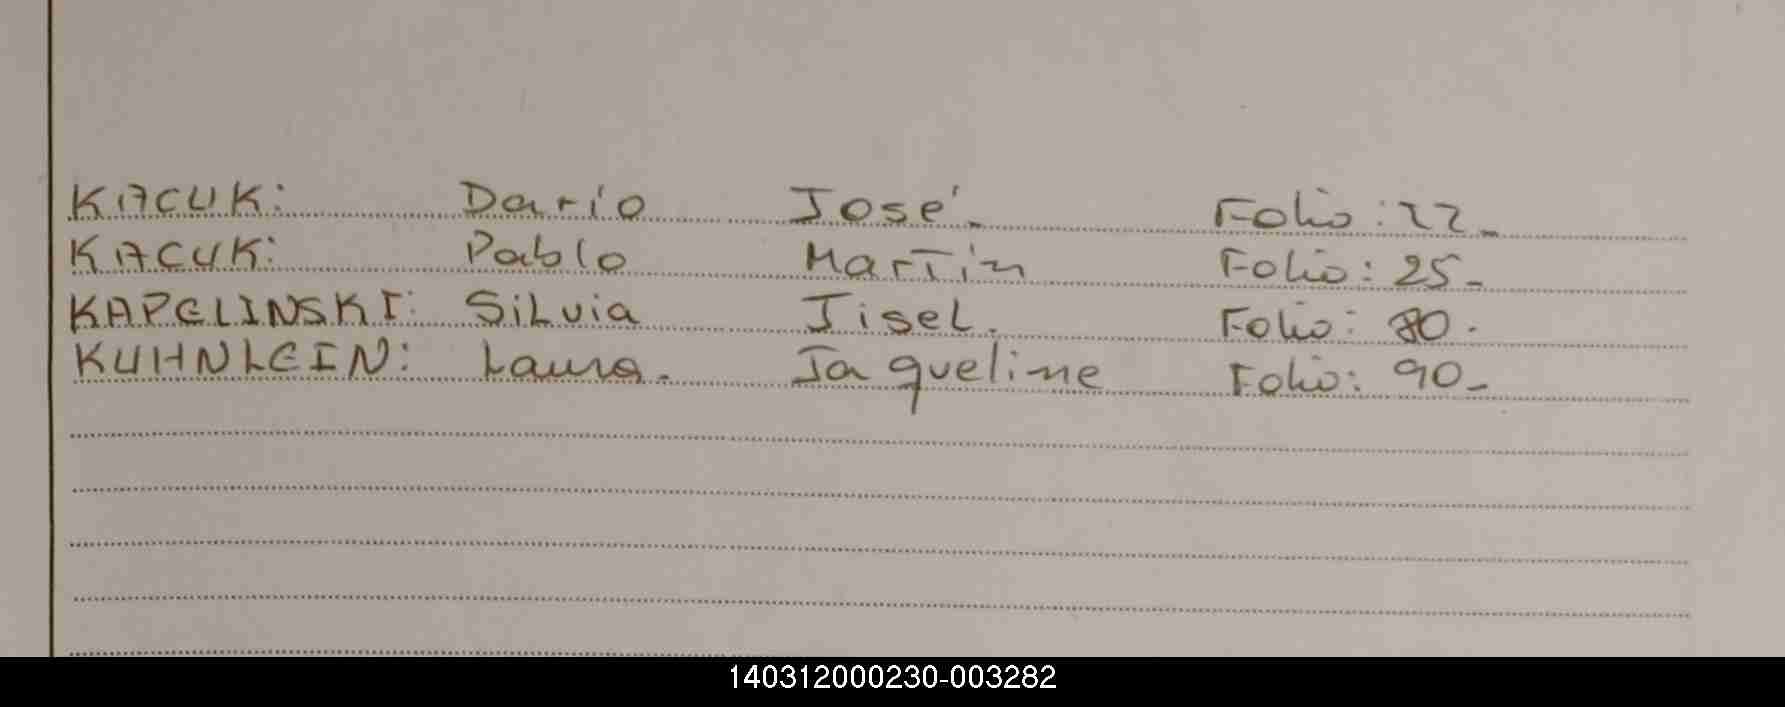 KACUK: Darío José. Folio: 22-
KACUK: Pablo Martín Folio: 25-
KAPELINSKI: Silvia Jisel. Folio: 80.
KUHNLEIN: Laura. Jaqueline Folio: 90-
140312000230-003282